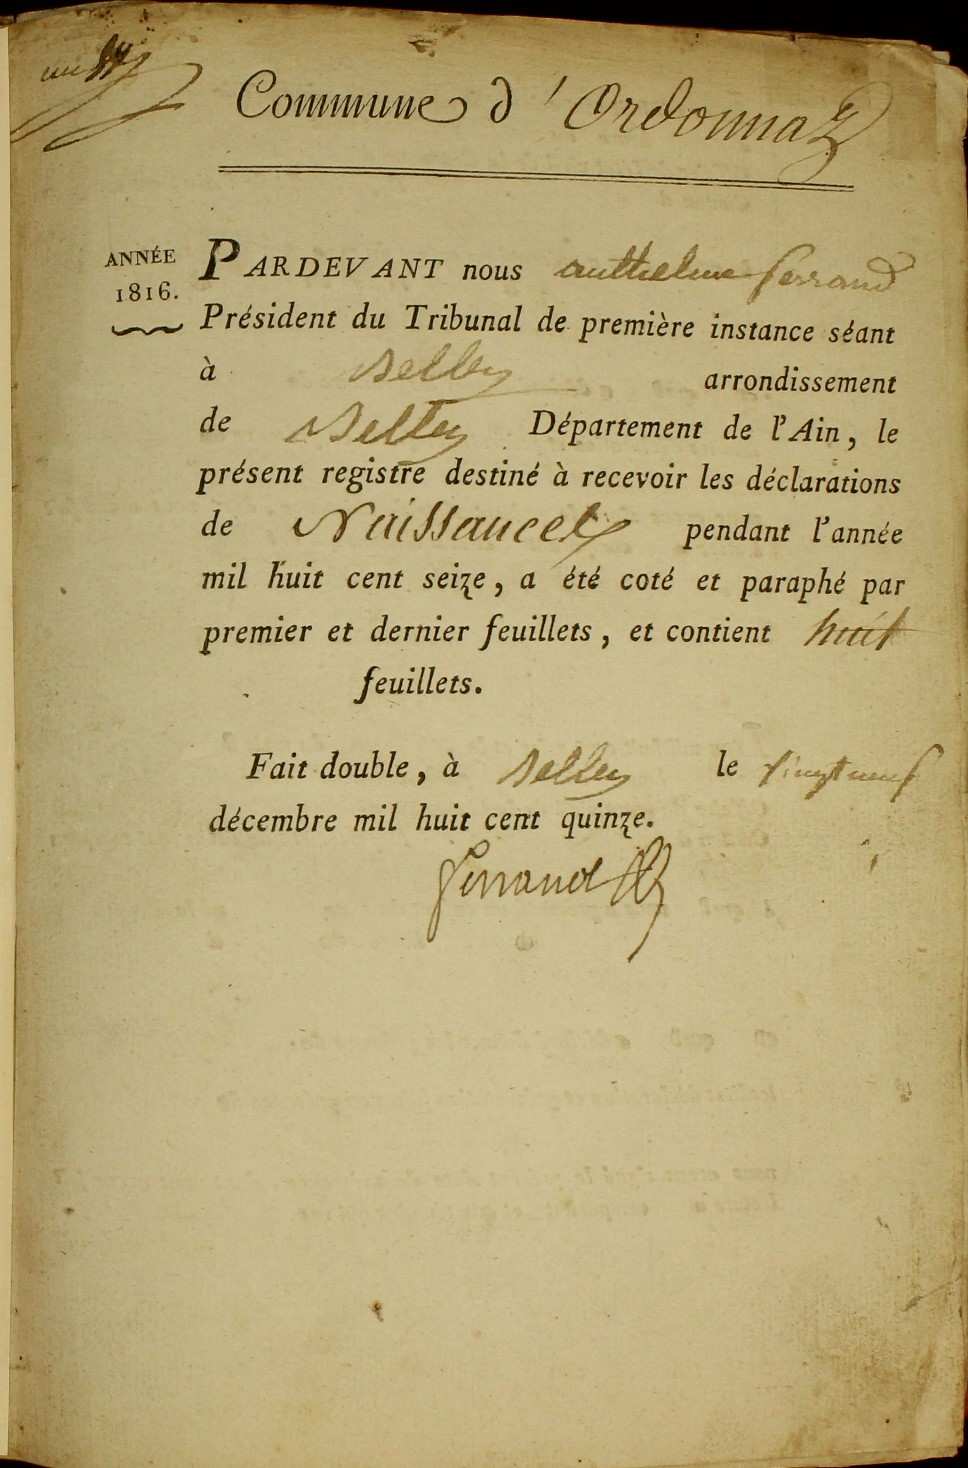 Commune d'Ordonnaz
ANNÉE
1816.
PARDEVANT nous anthelme ferrand
Président du Tribunal de première instance séant
à Belley arrondissement
de Belley Département de l'Ain, le
présent registre destiné à recevoir les déclarations
de Naissances pendant l'année
mil huit cent seize, a été coté et paraphé par
premier et dernier feuillets, et contient huit
feuillets.
Fait double, à Belley le vingt neuf
décembre mil huit cent quinze.
ferrand